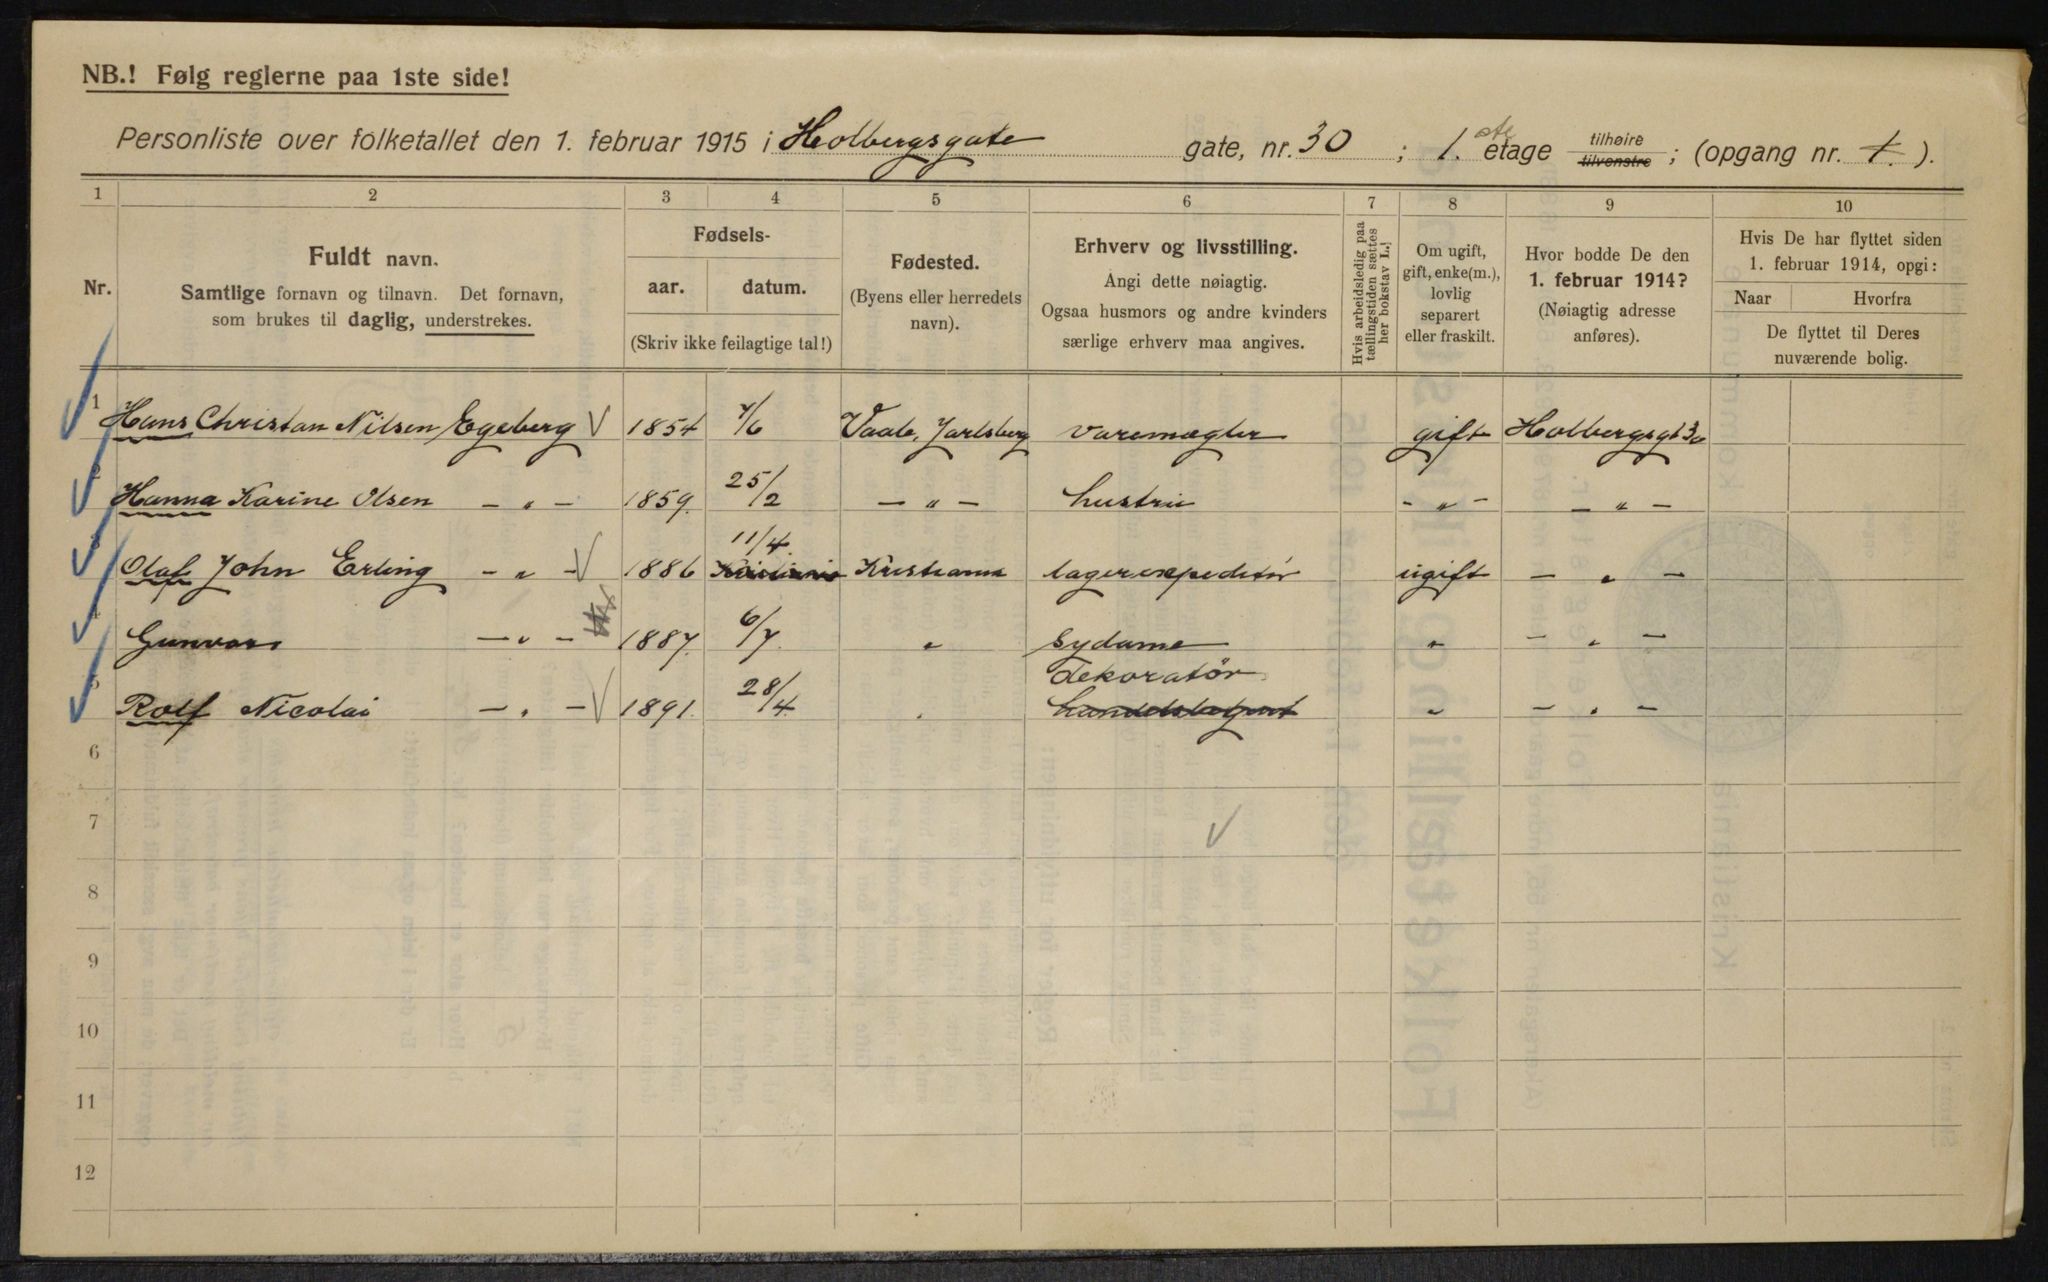 NB.! Følg reglerne paa 1ste side!
Personliste over folketallet den 1. februar 1915 i Holbergsgate gate, nr. 30 ; 1.ste etage tilhøire tilvenstre ; (opgang nr. 1. ).
1 2 3 4 5 6 7 8 9 10
Nr. Fuldt navn. Samtlige fornavn og tilnavn. Det fornavn, som brukes til daglig, understrekes.
Fødsels- aar. datum. (Skriv ikke feilagtige tal!)
Fødested. (Byens eller herredets navn).
Erhverv og livsstilling. Angi dette nøiagtig. Ogsaa husmors og andre kvinders særlige erhverv maa angives.
Hvis arbeidsledig paa tællingstiden sættes her bokstav L.!
Om ugift, gift, enke(m.), lovlig separert eller fraskilt.
Hvor bodde De den 1. februar 1914? (Nøiagtig adresse anføres).
Hvis De har flyttet siden 1. februar 1914, opgi: Naar Hvorfra De flyttet til Deres nuværende bolig.
1 Hans Christian Nilsen Egeberg 1854 7/6 Vaale, Jarlsberg varemægler gift Holbergsgt 30
2 Hanna Karine Olsen — " — 1859. 25/2 — " — hustru - " - — " —
3 Olaf John Erling — " — 1886 11/4 Kristiania lagerexpeditør ugift — " —
4 Gunvor — " — 1887. 6/7. " sydame " — " —
5 Rolf Nicolai — " — 1891. 28/4. " dekoratør handelsagent " — " —
6
7
8
9
10
11
12